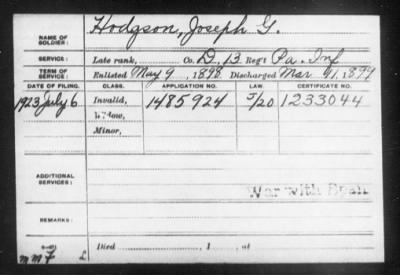 NAME OF SOLDIER: Hodgson, Joseph G.
SERVICE: Late rank, Co. D, 13 Reg't Pa. Inf
TERM OF SERVICE: Enlisted May 9, 1898 Discharged Mar 11, 1899
DATE OF FILING. CLASS. APPLICATION NO. LAW. CERTIFICATE NO.
1923 July 6 Invalid, 1485924 5/20 1233044
Widow,
Minor,
ADDITIONAL SERVICES:
War with Spain
REMARKS:
Died , 1 , at